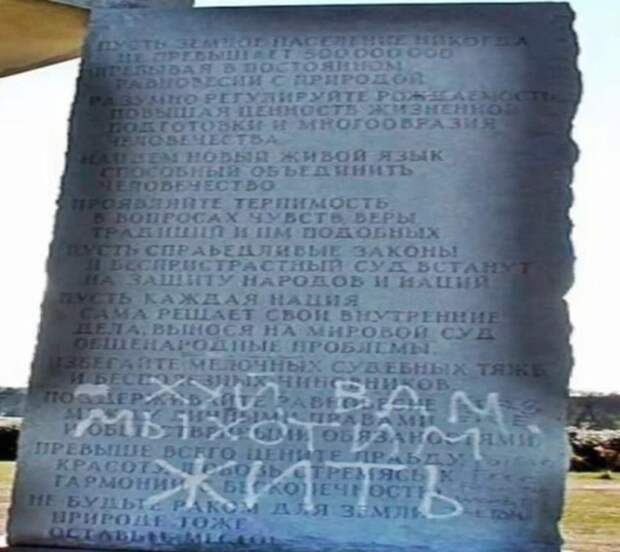 ПУСТЬ ЗЕМНОЕ НАСЕЛЕНИЕ НИКОГДА
НЕ ПРЕВЫШАЕТ 500 000 000
ПРЕБЫВАЯ В ПОСТОЯННОМ
РАВНОВЕСИИ С ПРИРОДОЙ
РАЗУМНО РЕГУЛИРУЙТЕ РОЖДАЕМОСТЬ
ПОВЫШАЯ ЦЕННОСТЬ ЖИЗНЕННОЙ
ПОДГОТОВКИ И МНОГООБРАЗИЯ
ЧЕЛОВЕЧЕСТВА
НАЙДЕМ НОВЫЙ ЖИВОЙ ЯЗЫК
СПОСОБНЫЙ ОБЪЕДИНИТЬ
ЧЕЛОВЕЧЕСТВО
ПРОЯВЛЯЙТЕ ТЕРПИМОСТЬ
В ВОПРОСАХ ЧУВСТВ, ВЕРЫ,
ТРАДИЦИЙ И ИМ ПОДОБНЫХ
ПУСТЬ СПРАВЕДЛИВЫЕ ЗАКОНЫ
И БЕСПРИСТРАСТНЫЙ СУД ВСТАНУТ
НА ЗАЩИТУ НАРОДОВ И НАЦИЙ
ПУСТЬ КАЖДАЯ НАЦИЯ
САМА РЕШАЕТ СВОИ ВНУТРЕННИЕ
ДЕЛА, ВЫНОСЯ НА МИРОВОЙ СУД
ОБЩЕНАРОДНЫЕ ПРОБЛЕМЫ.
ИЗБЕГАЙТЕ МЕЛОЧНЫХ СУДЕБНЫХ ТЯЖБ
И БЕСПОЛЕЗНЫХ ЧИНОВНИКОВ.
- ХУЙ ВАМ,
МЫ ХОТИМ
ЖИТЬ
ПРЕВЫШЕ ВСЕГО ЦЕНИТЕ ПРАВДУ,
КРАСОТУ, ЛЮБОВЬ, СТРЕМЯСЬ К
ГАРМОНИИ С БЕСКОНЕЧНОСТЬЮ
НЕ БУДЬТЕ РАКОМ ДЛЯ ЗЕМЛИ,
ПРИРОДЕ ТОЖЕ
ОСТАВЬТЕ МЕСТО!